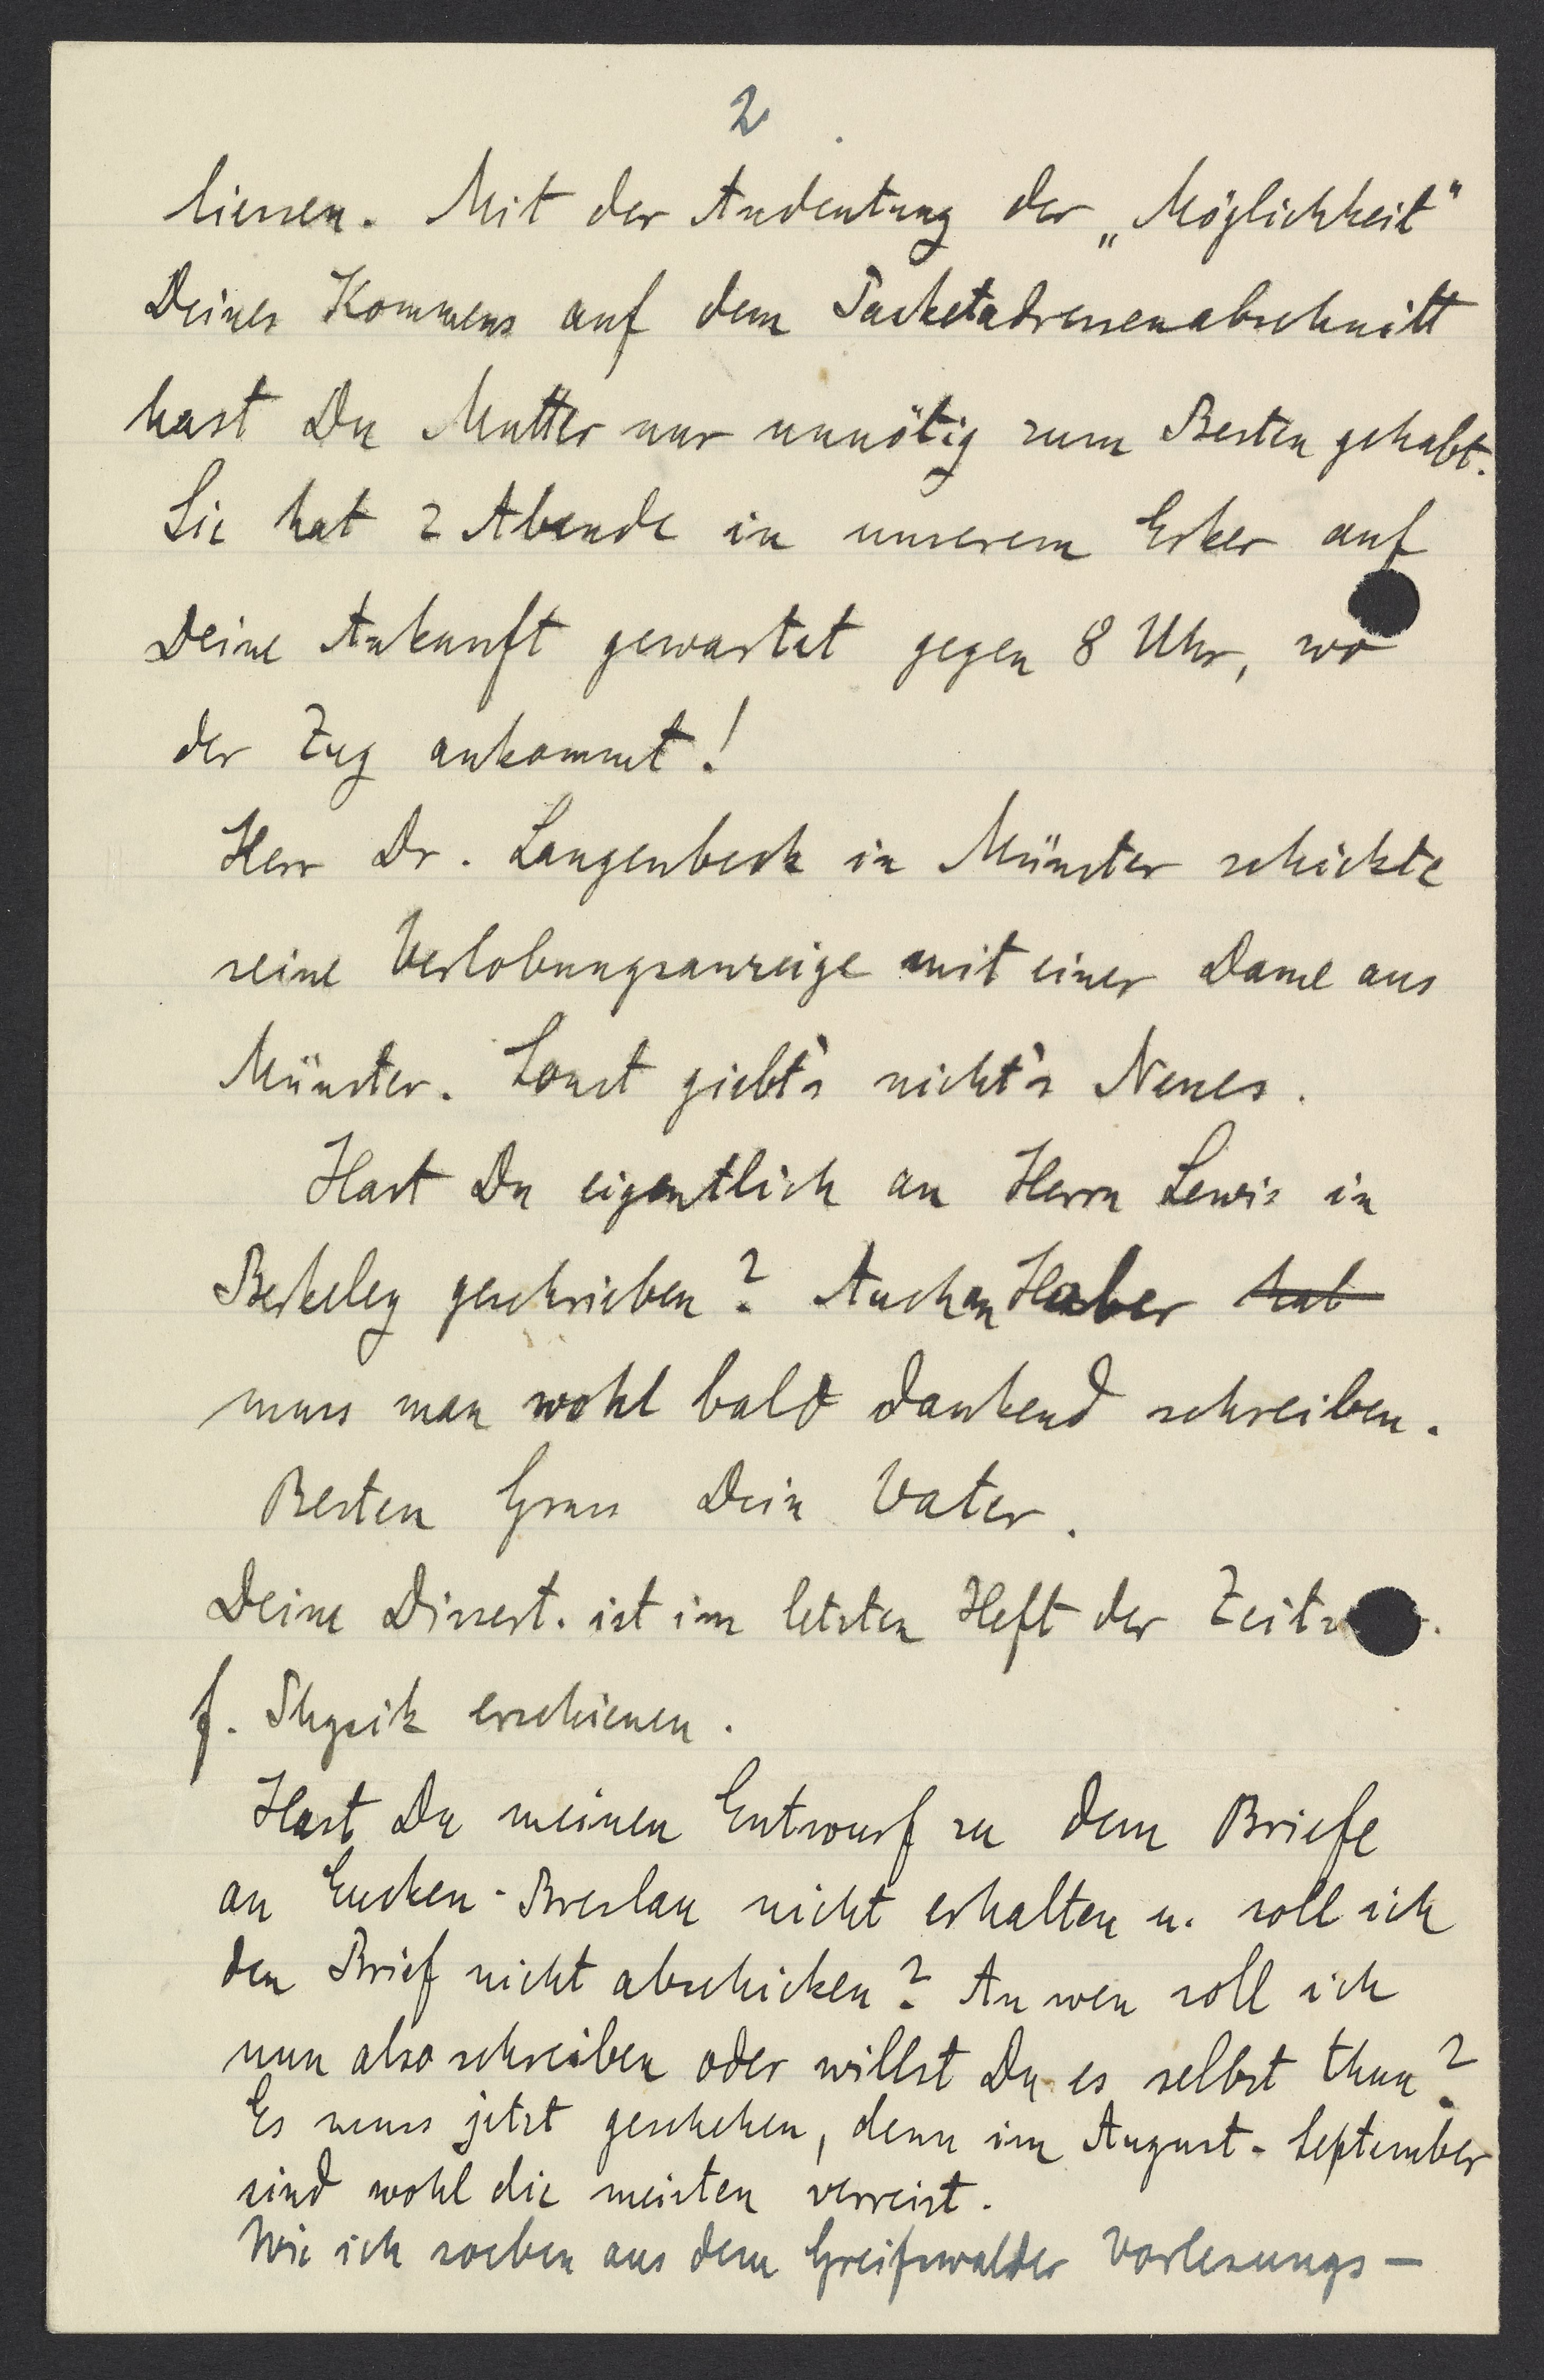 2
liessen. Mit der Andeutung der „Möglichkeit"
Deines Kommens auf dem Packetadressenabschnitt
hast Du Mutter nur unnötig zum Besten gehabt.
Sie hat 2 Abende in unserem Erker auf
Deine Ankunft gewartet gegen 8 Uhr, wo
der Zug ankommt!
Herr Dr. Langenbeck in Münster schickte
seine Verlobungsanzeige mit einer Dame aus
Münster. Sonst giebt's nicht's Neues.
Hast Du eigentlich an Herrn Lewis in
Berkeley geschrieben? Auch an Haber hat
muss man wohl bald dankend schreiben.
Besten Gruss Dein Vater.
Deine Dissert. ist im letzten Heft der
f. Physik erschienen.
Hast Du meinen Entwurf zu dem Briefe
an Eucken-Breslau nicht erhalten u. soll ich
den Brief nicht abschicken? An wen soll ich
nun also schreiben oder willst Du es selbst thun?
Es muss jetzt geschehen, denn im August-September
sind wohl die meisten verreist.
Wie ich soeben aus dem Greifswalder Vorlesungs-